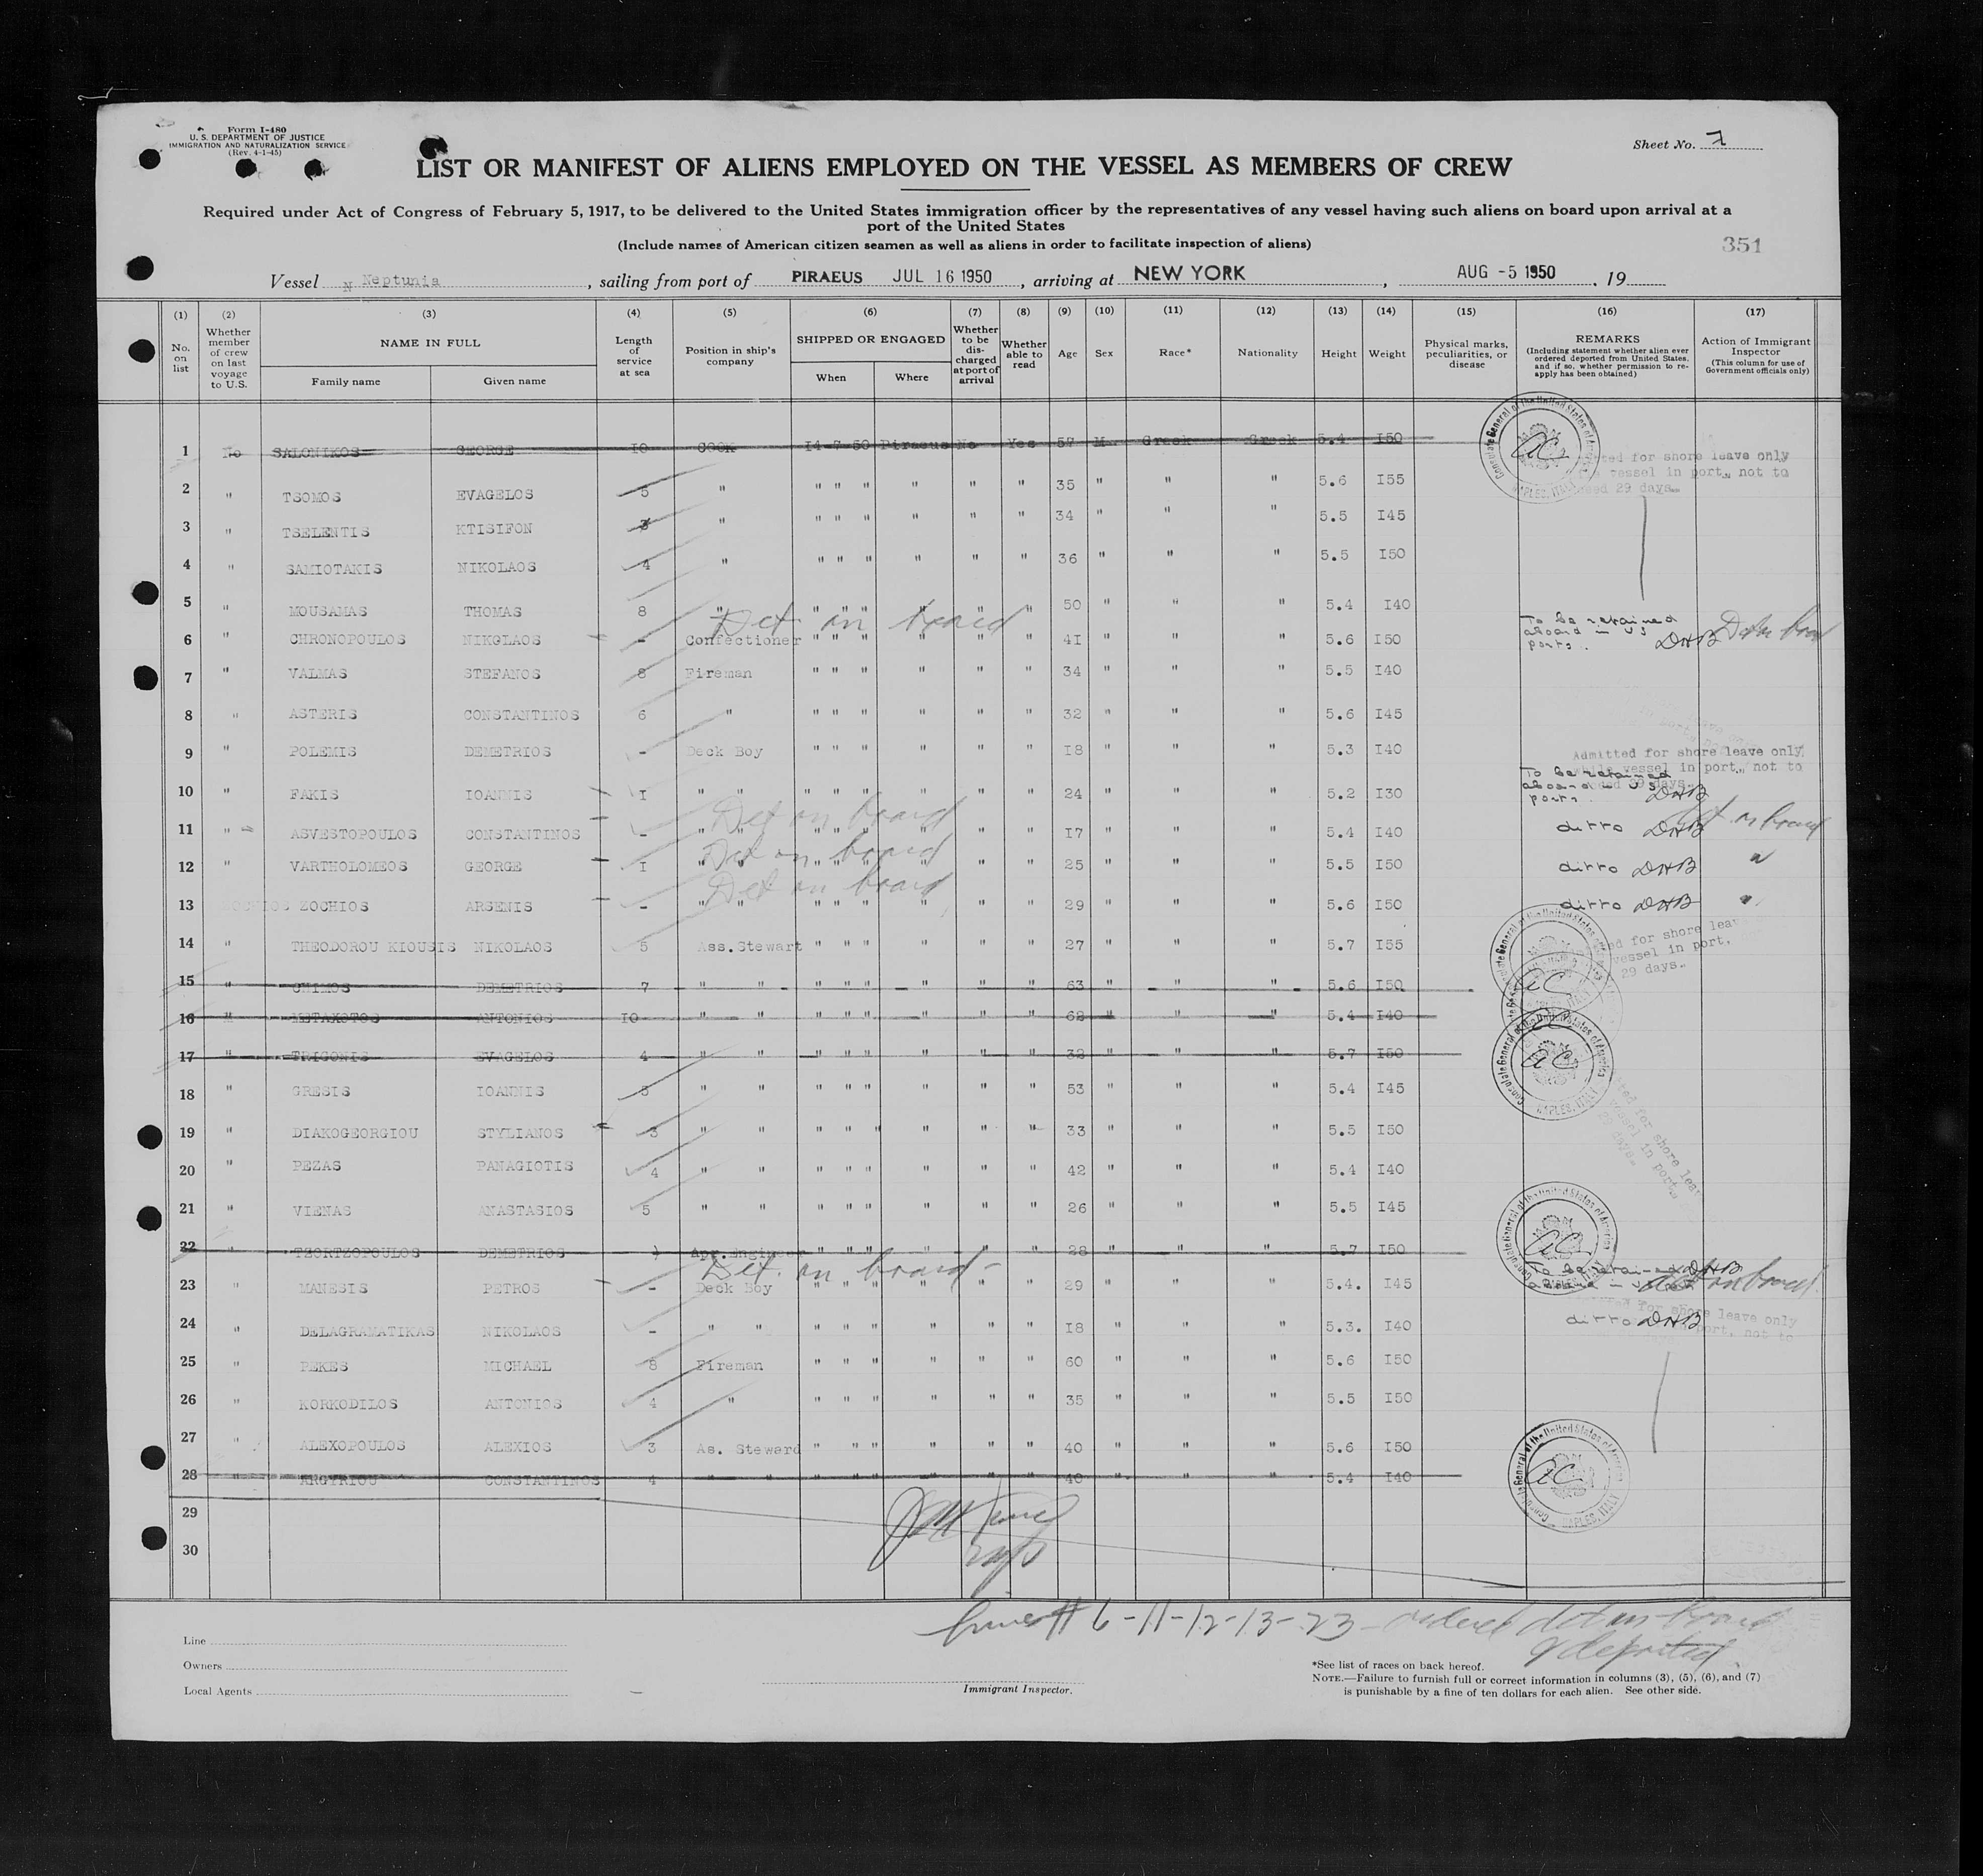 Form I-480
U. S. DEPARTMENT OF JUSTICE
IMMIGRATION AND NATURALIZATION SERVICE
(Rev. 4-1-45)
Sheet No. 7
LIST OR MANIFEST OF ALIENS EMPLOYED ON THE VESSEL AS MEMBERS OF CREW
Required under Act of Congress of February 5, 1917, to be delivered to the United States immigration officer by the representatives of any vessel having such aliens on board upon arrival at a
port of the United States
(Include names of American citizen seamen as well as aliens in order to facilitate inspection of aliens)
351
Vessel Neptunia, sailing from port of PIRAEUS JUL 16 1950, arriving at NEW YORK, AUG -5 1950, 19
(1) (2) (3) (4) (5) (6) (7) (8) (9) (10) (11) (12) (13) (14) (15) (16) (17)
No. on list
Whether member of crew on last voyage to U.S.
NAME IN FULL
Family name
Given name
Length of service at sea
Position in ship's company
SHIPPED OR ENGAGED
When
Where
Whether to be discharged at port of arrival
Whether able to read
Age
Sex
Race*
Nationality
Height
Weight
Physical marks, peculiarities, or disease
REMARKS
(Including statement whether alien ever ordered deported from United States, and if so, whether permission to reapply has been obtained)
Action of Immigrant Inspector
(This column for use of Government officials only)
1 No SALONIKOS GEORGE 10 COOK 14-7-50 Piraeus No Yes 57 M. Greek Greek 5.4 I50
2 " TSOMOS EVAGELOS 5 " " " " " " " 35 " " " 5.6 I55
3 " TSELENTIS KTISIFON 3 " " " " " " " 34 " " " 5.5 I45
4 " SAMIOTAKIS NIKOLAOS 4 " " " " " " " 36 " " " 5.5 I50
5 " MOUSAMAS THOMAS 8 " " " " " " " 50 " " " 5.4 I40
Det on board
6 " CHRONOPOULOS NIKOLAOS - Confectioner " " " " " " 4I " " " 5.6 I50 To be retained aboard in US ports. DHB Det on board
7 " VALMAS STEFANOS 8 Fireman " " " " " " 34 " " " 5.5 I40
8 " ASTERIS CONSTANTINOS 6 " " " " " " " 32 " " " 5.6 I45
9 " POLEMIS DEMETRIOS - Deck Boy " " " " " " I8 " " " 5.3 I40
Admitted for shore leave only
while vessel in port, not to
exceed 29 days.
10 " FAKIS IOANNIS I " " " " " " " " 24 " " " 5.2 I30 To be retained aboard in US ports. DHB
Det on board
11 " ASVESTOPOULOS CONSTANTINOS - " " " " " " " " I7 " " " 5.4 I40 ditto DHB Det on board
Det on board
12 " VARTHOLOMEOS GEORGE I " " " " " " " " 25 " " " 5.5 I50 ditto DHB "
Det on board
13 ZOCHIOS ARSENIS - " " " " " " " " 29 " " " 5.6 I50 ditto DHB "
14 " THEODOROU KIOUSIS NIKOLAOS 5 Ass.Stewart " " " " " " 27 " " " 5.7 I55
15 " DEMETRIOS 7 " " " " " " " " 63 " " " 5.6 I50
16 " METAXOTOS ANTONIOS IO " " " " " " " " 62 " " " 5.4 I40
17 " TRIGONIS EVAGELOS 4 " " " " " " " " 32 " " " 5.7 I50
18 " GRESIS IOANNIS 3 " " " " " " " " 53 " " " 5.4 I45
19 " DIAKOGEORGIOU STYLIANOS 3 " " " " " " " " 33 " " " 5.5 I50
20 " PEZAS PANAGIOTIS 4 " " " " " " " " 42 " " " 5.4 I40
21 " VIENAS ANASTASIOS 5 " " " " " " " " 26 " " " 5.5 I45
22 " TZORTZOPOULOS DEMETRIOS Apr.Engineer " " " " " " 28 " " " 5.7 I50
Det. on board -
23 " MANESIS PETROS - Deck Boy " " " " " " 29 " " " 5.4. I45 To be retained aboard in US DHB det on board
24 " DELAGRAMATIKAS NIKOLAOS - " " " " " " " " I8 " " " 5.3. I40 ditto DHB
25 " PEKES MICHAEL 8 Fireman " " " " " " 60 " " " 5.6 I50
26 " KORKODILOS ANTONIOS 4 " " " " " " " 35 " " " 5.5 I50
27 " ALEXOPOULOS ALEXIOS 3 As. Steward " " " " " " 40 " " " 5.6 I50
28 " ARGYRIOU CONSTANTINOS 4 " " " " " " " " 40 " " " 5.4 I40
29
30
Consulate General of the United States of America
NAPLES, ITALY
Lines # 6-11-12-13-23- ordered det on board
& deported.
Line
Owners
Local Agents
Immigrant Inspector.
*See list of races on back hereof.
NOTE.—Failure to furnish full or correct information in columns (3), (5), (6), and (7)
is punishable by a fine of ten dollars for each alien. See other side.